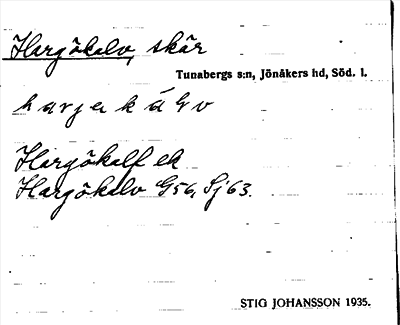 Hargökalv, skär
Tunabergs s:n, Jönåkers hd, Söd. l.
Hargökalf ek
Hargökalv G56, Sj 63.
STIG JOHANSSON 1935.